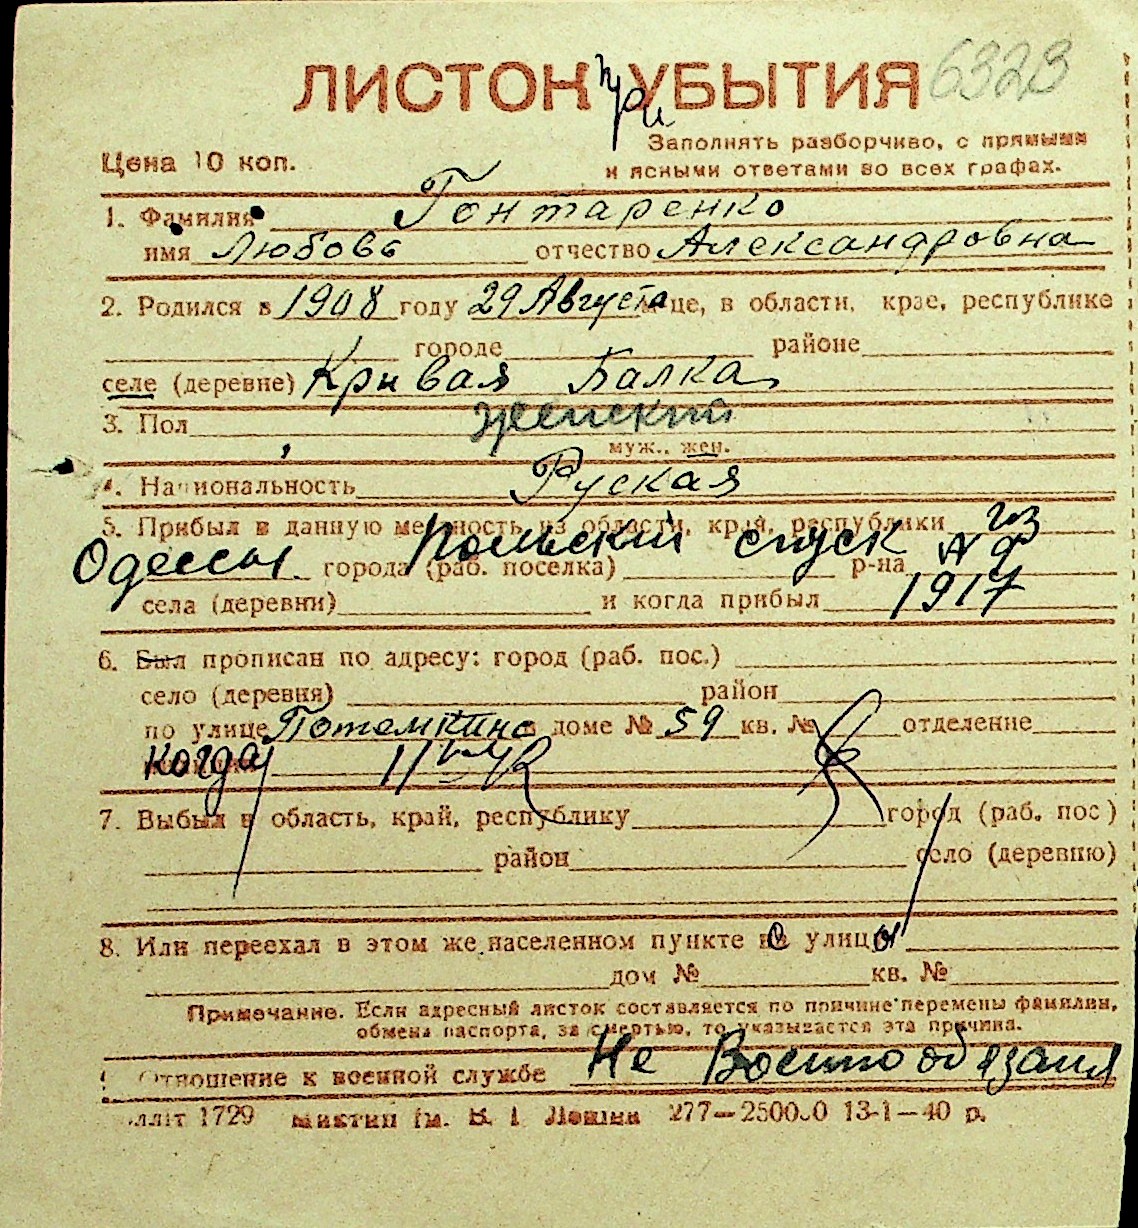 ЛИСТОК при УБЫТИЯ 6323
Цена 10 коп.
Заполнять разборчиво, с прямыми
и ясными ответами во всех графах.
1. Фамилия Гонтаренко
имя Любовь отчество Александровна
2. Родился в 1908 году 29 Августа м-це, в области, крае, республике
городе районе
селе (деревне) Кривая Балка
3. Пол женский
муж., жен.
4. Национальность Руская
5. Прибыл в данную местность из области, край, республики из
Одессы города (раб. поселка) Польский спуск р-на № 9
села (деревни) и когда прибыл 1917
6. Был прописан по адресу: город (раб. пос.)
село (деревня) район
по улице Потемкина в доме № 59 кв. № отделение
Когда
7. Выбыл в область, край, республику город (раб. пос)
район село (деревню)
8. Или переехал в этом же населенном пункте с улицы
дом № кв. №
Примечание. Если адресный листок составляется по причине перемены фамилии,
обмена паспорта, за смертью, то указывается эта причина.
Отношение к военной службе Не Военнообязаня
1729 277—250000 13-1—40 р.